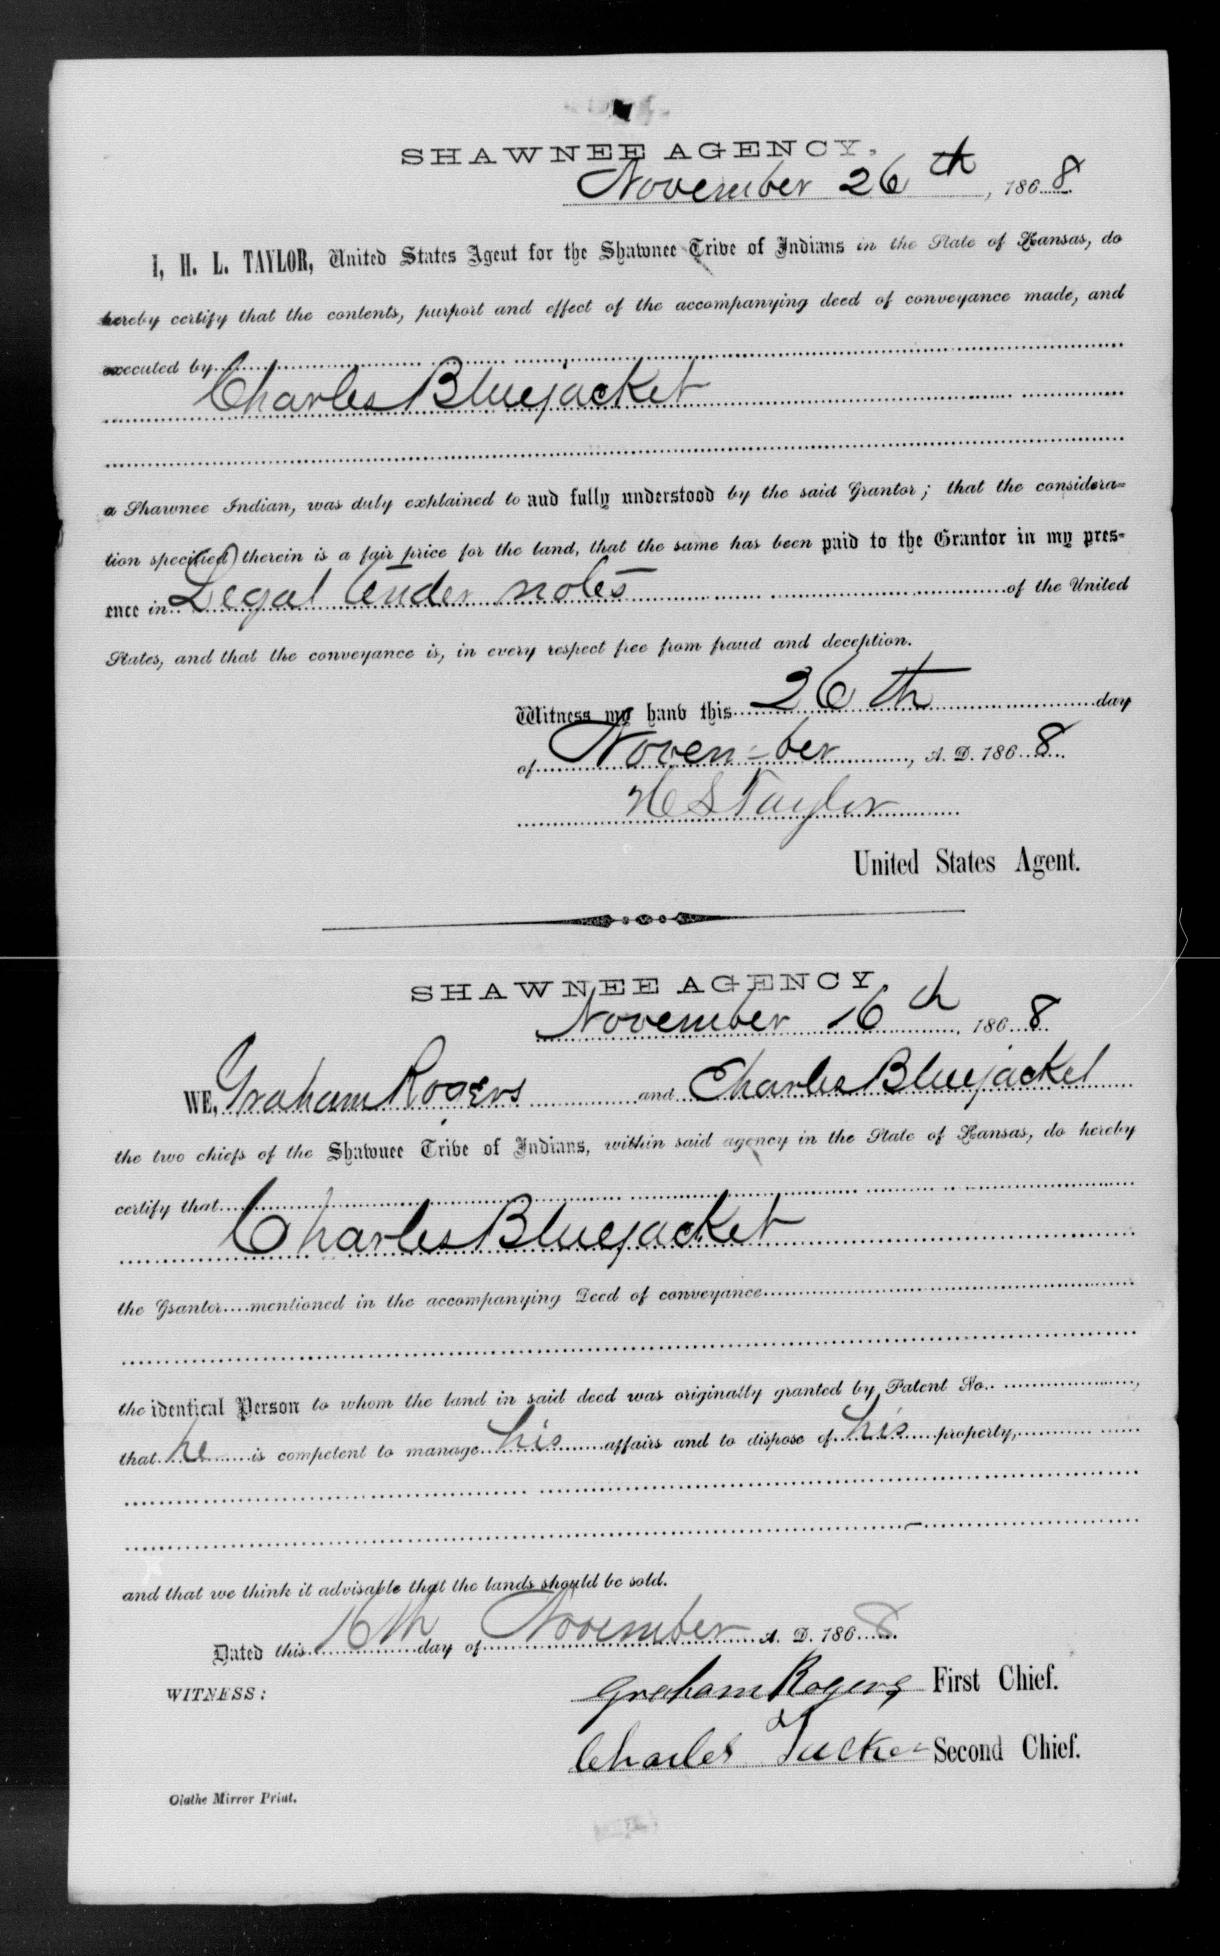 SHAWNEE AGENCY,
November 26th, 1868
I, H. L. TAYLOR, United States Agent for the Shawnee Tribe of Indians in the State of Kansas, do
hereby certify that the contents, purport and effect of the accompanying deed of conveyance made, and
executed by
Charles Bluejacket
a Shawnee Indian, was duly explained to and fully understood by the said Grantor; that the considera-
tion specified) therein is a fair price for the land, that the same has been paid to the Grantor in my pres-
ence in Legal tender notes of the United
States, and that the conveyance is, in every respect free from fraud and deception.
Witness my hand this 26th day
of November, A. D. 1868
H L Taylor
United States Agent.
SHAWNEE AGENCY
November 16th, 1868
WE, Graham Rogers and Charles Bluejacket
the two chiefs of the Shawnee Tribe of Indians, within said agency in the State of Kansas, do hereby
certify that
Charles Bluejacket
the Grantor mentioned in the accompanying Deed of conveyance
the identical Person to whom the land in said deed was originally granted by Patent No.,
that he is competent to manage his affairs and to dispose of his property,
and that we think it advisable that the lands should be sold.
Dated this 16th day of November A. D. 1868
WITNESS:
Graham Rogers First Chief.
Charles Tucker Second Chief.
Olathe Mirror Print.